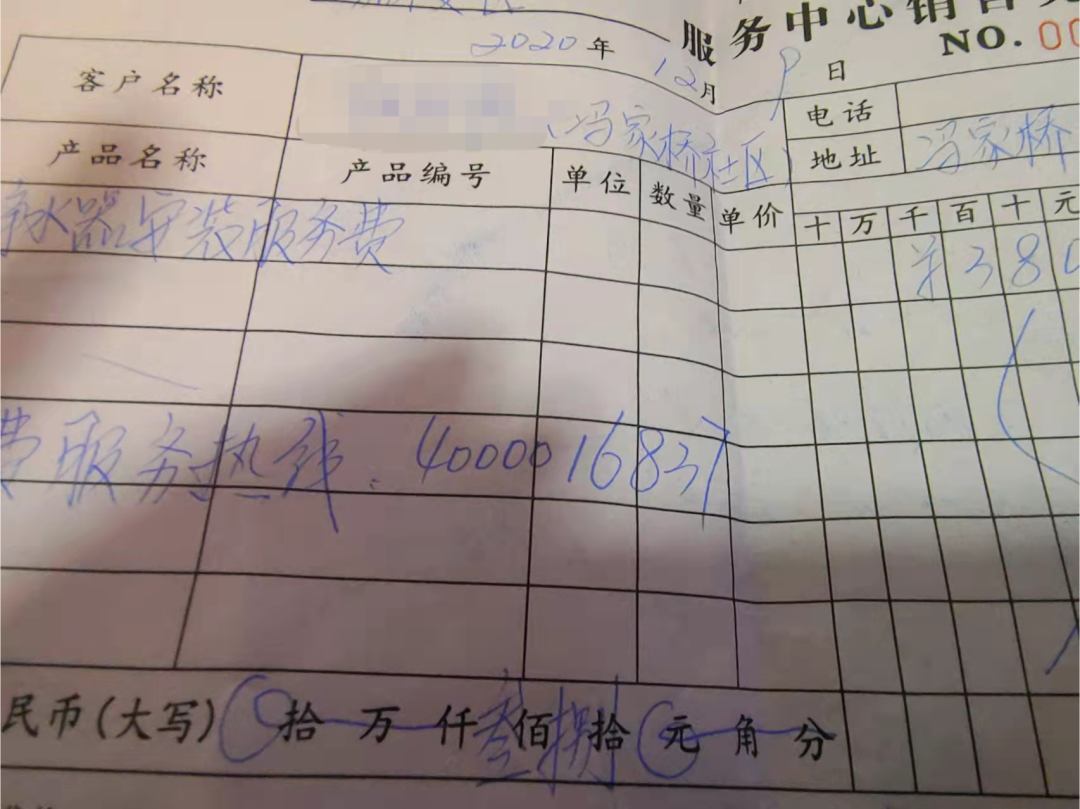 服务中心销售
NO. 00
2020年12月9日
客户名称
(冯家桥社区)
电话
地址 冯家桥
产品名称 产品编号 单位 数量 单价 十 万 千 百 十 元
净水器安装服务费 ¥380
费服务热线:4000016837
民币(大写) 拾 万 仟叁佰捌拾 元 角 分